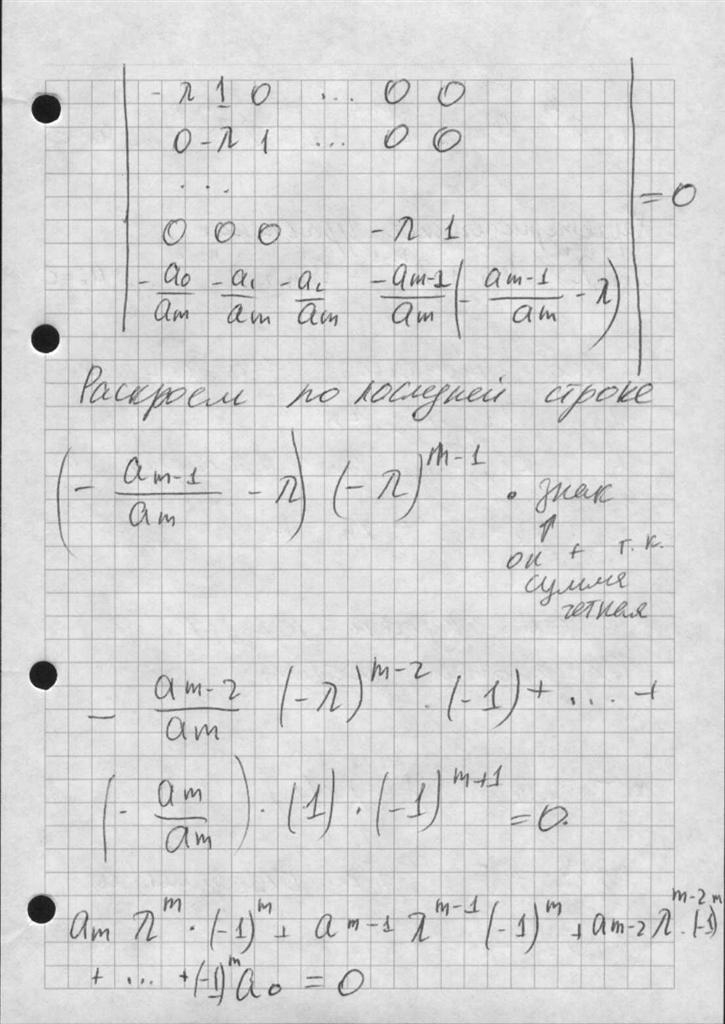 -λ 1 0 ... 0 0
0 -λ 1 ... 0 0
...
0 0 0 -λ 1 = 0
-a₀/aₘ -a₁/aₘ -a₂/aₘ -aₘ₋₁/aₘ (-aₘ₋₁/aₘ - λ)
Раскроем по последней строке
(-aₘ₋₁/aₘ - λ) (-λ)^{m-1} · знак
он + т.к.
сумма
четная
- aₘ₋₂/aₘ (-λ)^{m-2} · (-1) + ... +
(-aₘ/aₘ) · (1) · (-1)^{m+1} = 0.
aₘ λ^m · (-1)^m + aₘ₋₁ λ^{m-1} (-1)^m + aₘ₋₂ λ^{m-2} · (-1)^m
+ ... + (-1)^m a₀ = 0